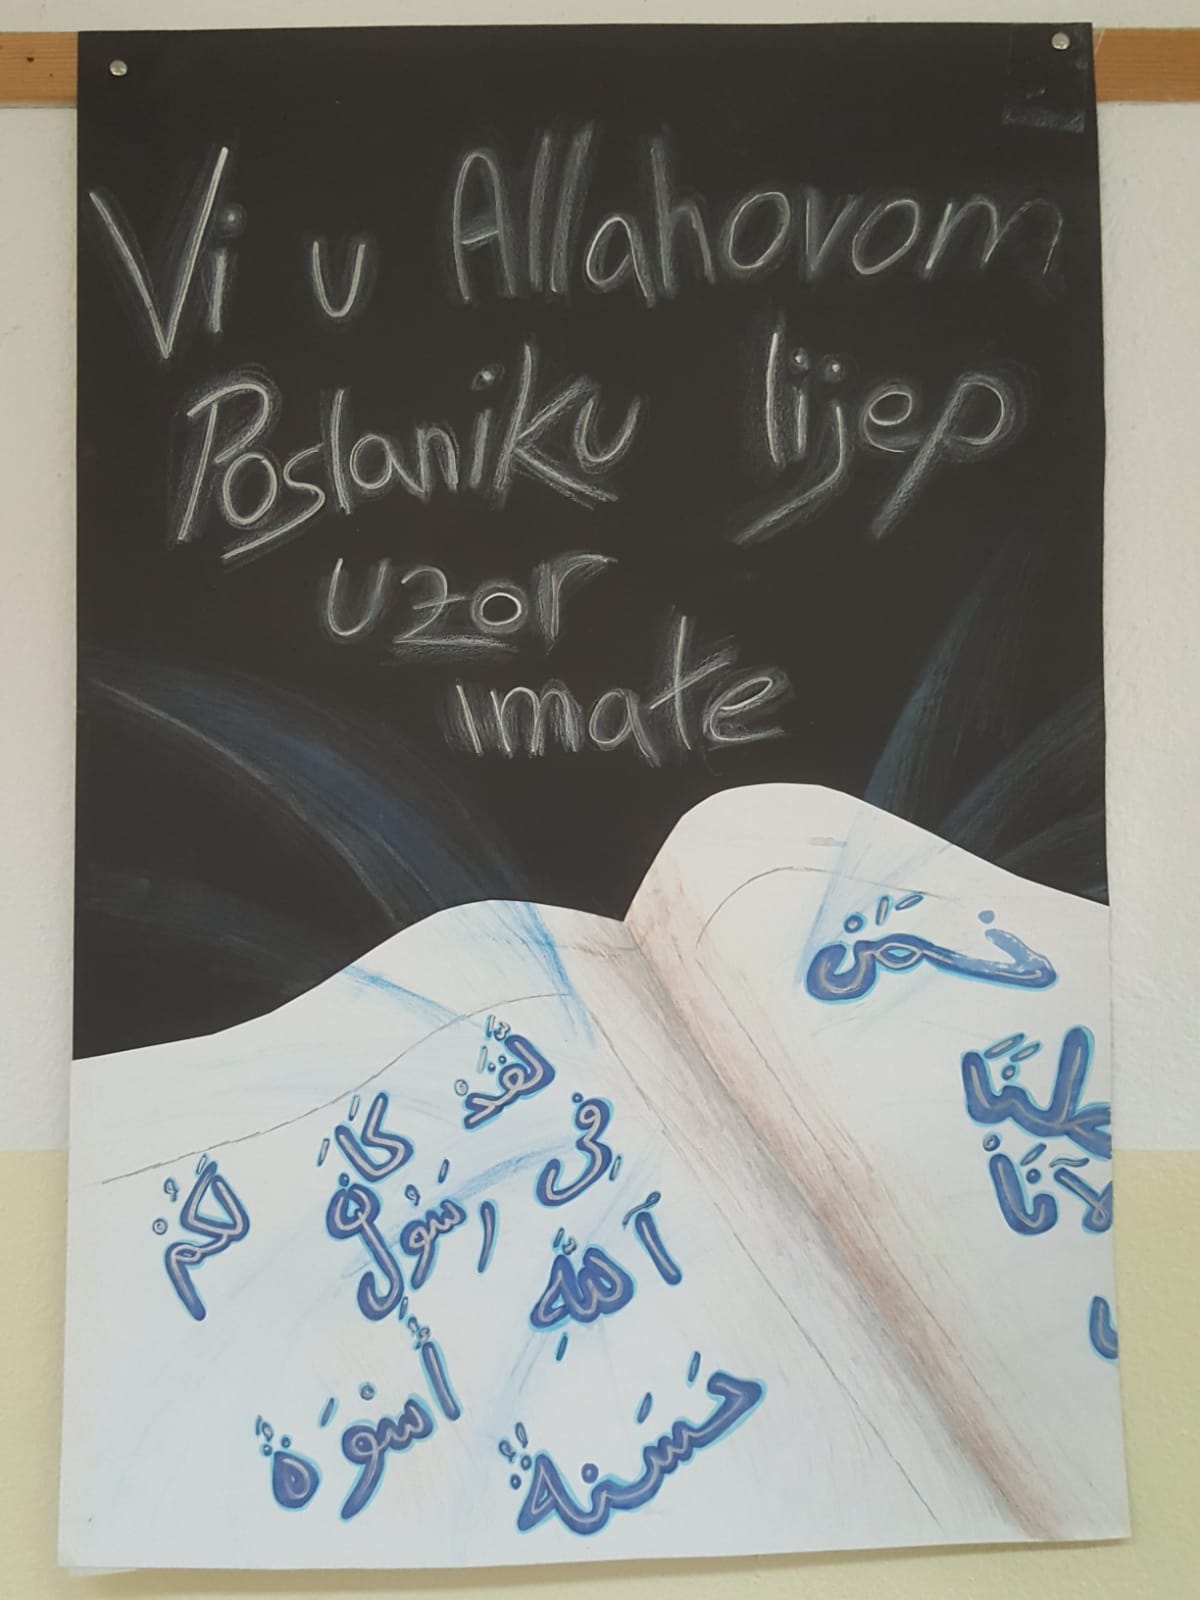 Vi u Allahovom
Poslaniku lijep
uzor
imate
لَقَدْ كَانَ لَكُمْ
فِى رَسُولِ
ٱللَّهِ أُسْوَةٌ
حَسَنَةٌ